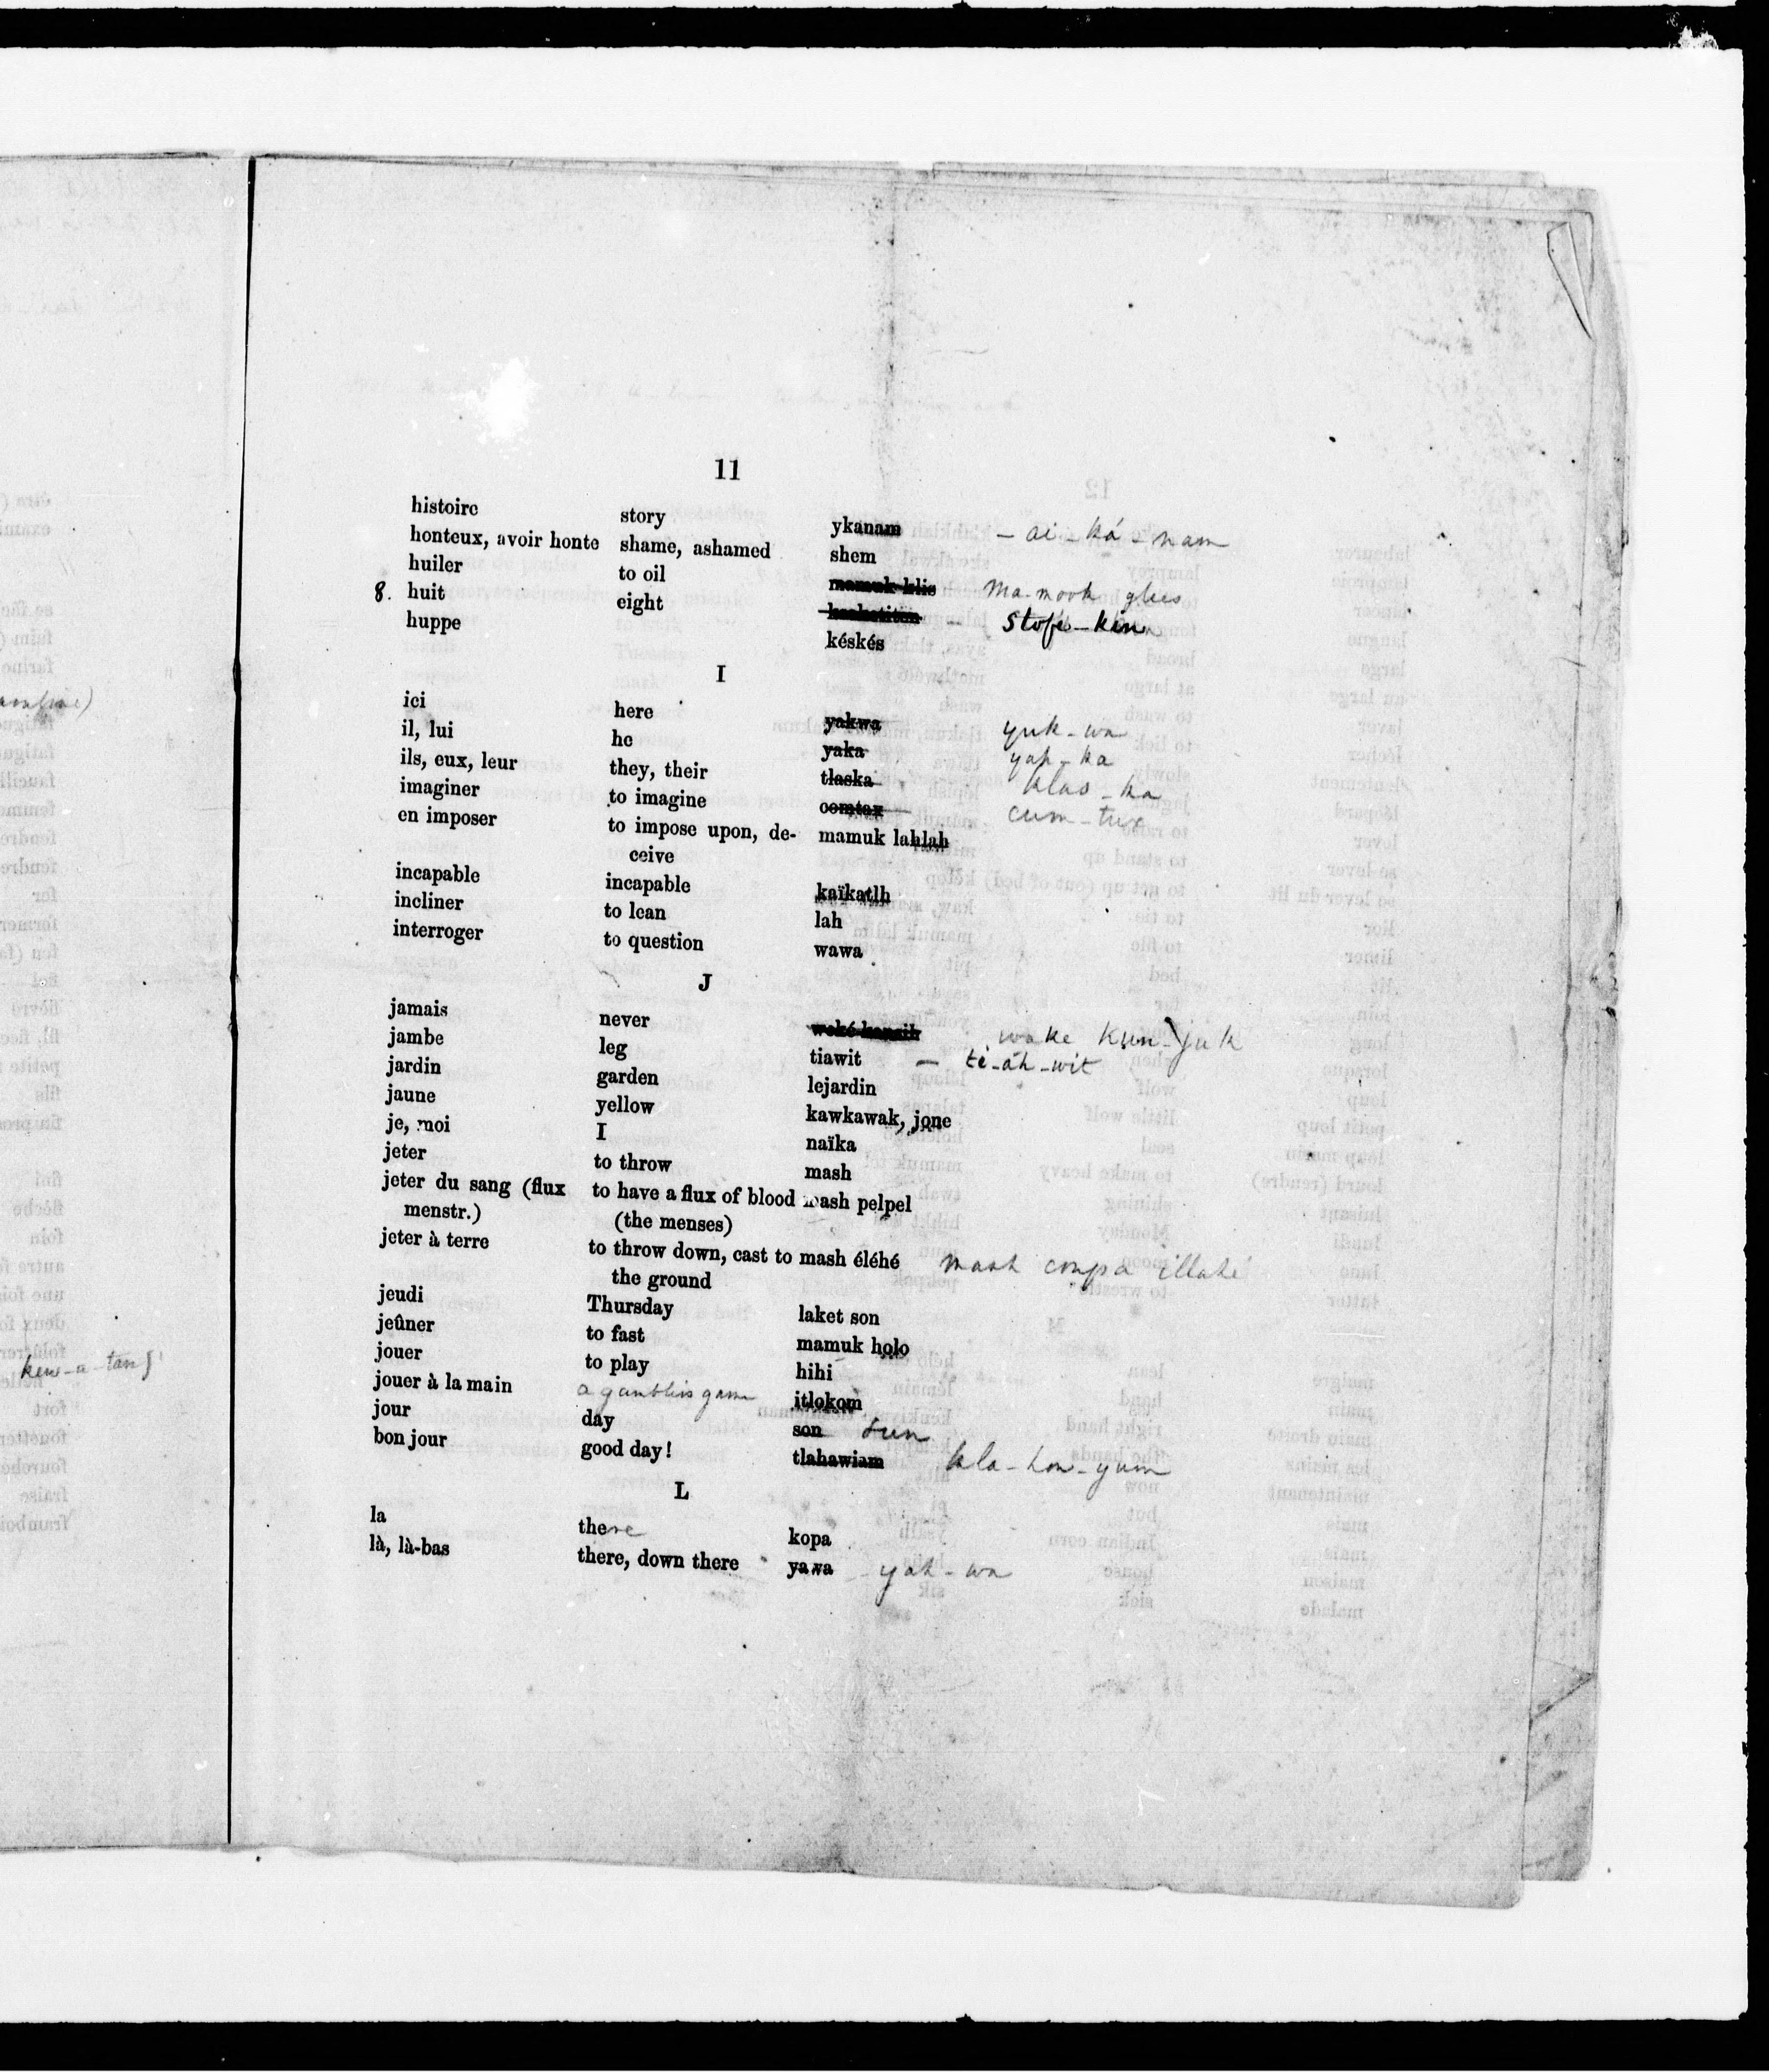 11
histoire story ykanam - ai - ká - nam
honteux, avoir honte shame, ashamed shem
huiler to oil mamuk klis Ma-mook glees
8. huit eight Stofe-kin
huppe késkés
I
ici here yakwa yuk-wa
il, lui he yaka yah-ka
ils, eux, leur they, their tlaska klas-ka
imaginer to imagine comtax cum-tux
en imposer to impose upon, de- mamuk lahlah
ceive
incapable incapable kaïkatlh
incliner to lean lah
interroger to question wawa
J
jamais never weké kansih wake kun-juk
jambe leg tiawit - te-áh-wit
jardin garden lejardin
jaune yellow kawkawak, jone
je, moi I naïka
jeter to throw mash
jeter du sang (flux to have a flux of blood mash pelpel
menstr.) (the menses)
jeter à terre to throw down, cast to mash éléhé mash coupa illahé
the ground
jeudi Thursday laket son
jeûner to fast mamuk holo
jouer to play hihi
jouer à la main a gambling game itlokom
jour day son sun
bon jour good day! tlahawiam kla-how-yum
L
la there kopa
là, là-bas there, down there yawa - yah-wa
kew-a-tan